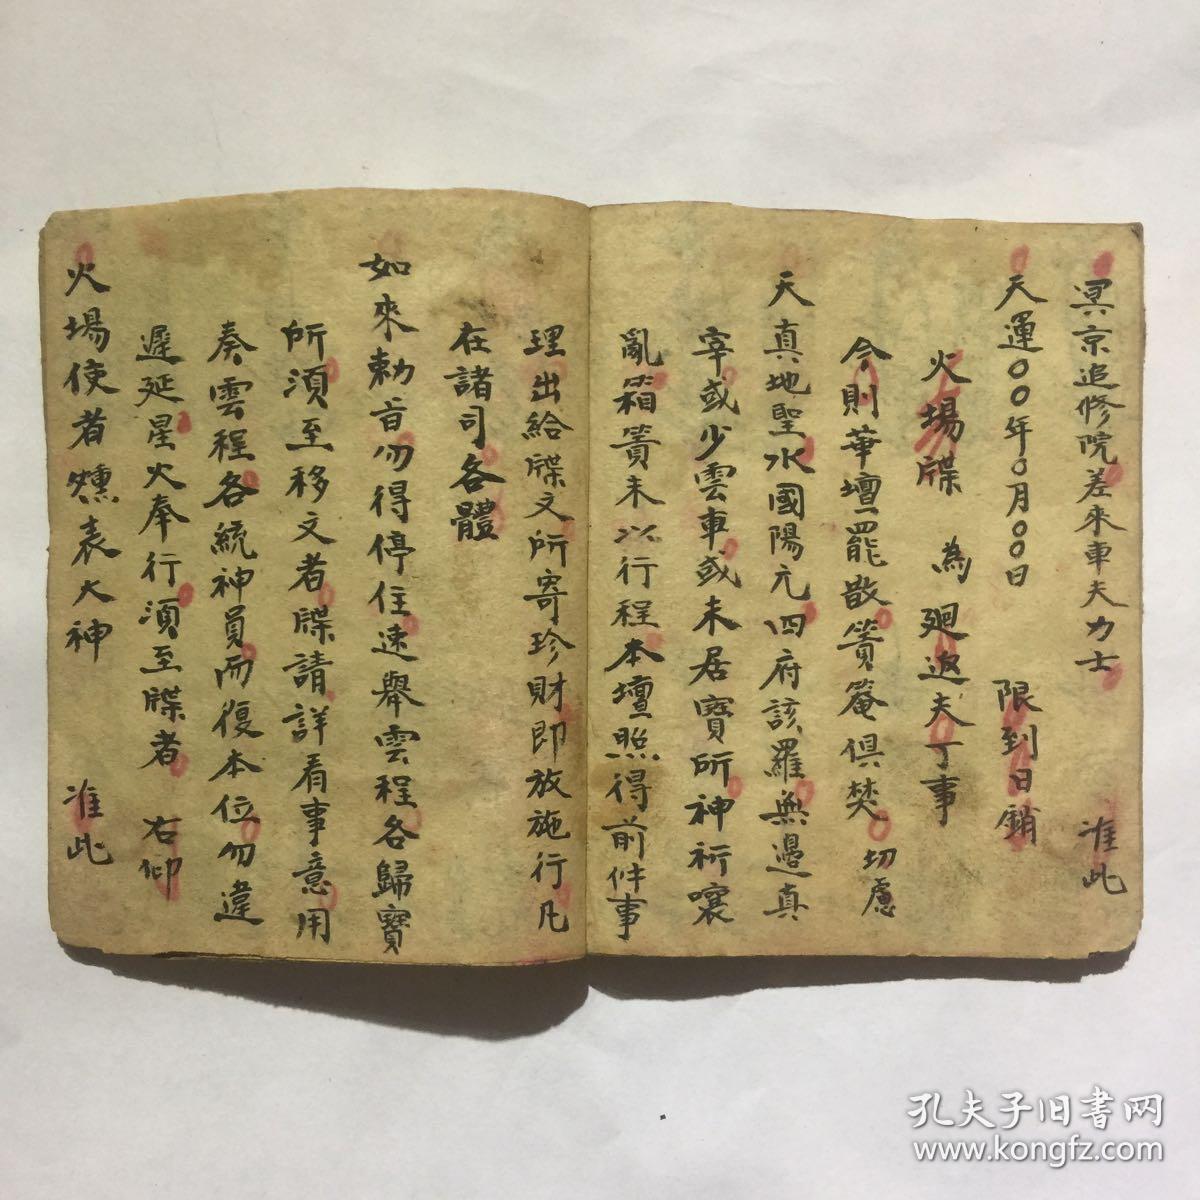 冥京追修院差來車夫力士 准此
天運〇〇年〇月〇〇日 限到日銷
火場牒 為 廻返夫丁事
今則華壇罷散簀菴俱焚 切慮
天真地聖水國陽元四府該羅無邊真
宰或少雲車或未居寶所神祈嚷
亂箱簀未以行程本壇照得前件事
理出給牒文所寄珍財即放施行凡
在諸司各體
如來勅旨勿得停住速舉雲程各歸寶
所須至移文者牒請詳看事意用
奏雲程各統神員而復本位勿違
遲延星火奉行須至牒者 右仰
火場使者燻表大神 准此
孔夫子旧书网
www.kongfz.com